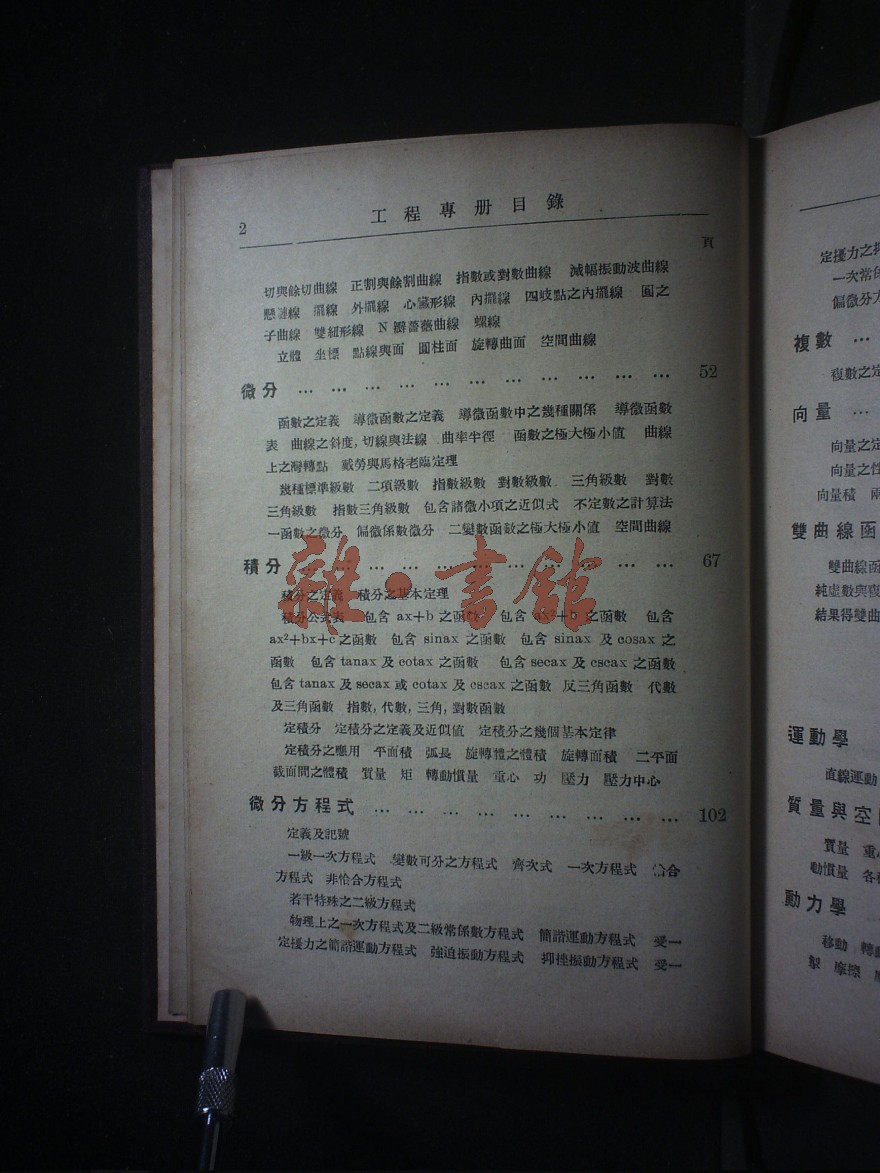 2
工程專册目錄
頁
切與餘切曲線 正割與餘割曲線 指數或對數曲線 減幅振動波曲線
懸鏈線 擺線 外擺線 心臟形線 內擺線 四歧點之內擺線 圓之
子曲線 雙紐形線 N 瓣薔薇曲線 螺線
立體 坐標 點線與面 圓柱面 旋轉曲面 空間曲線
微分 … … … … … … … … … … … 52
函數之定義 導微函數之定義 導微函數中之幾種關係 導微函數
表 曲線之斜度,切線與法線 曲率半徑 函數之極大極小值 曲線
上之灣轉點 戴勞與馬格老臨定理
幾種標準級數 二項級數 指數級數 對數級數 三角級數 對數
三角級數 指數三角級數 包含諸微小項之近似式 不定數之計算法
一函數之微分 偏微係數微分 二變數函數之極大極小值 空間曲線
積分 … … … … … … … … … … … 67
積分之定義 積分之基本定理
積分公式表 包含 ax+b 之函數 包含 ax²+b 之函數 包含
ax²+bx+c 之函數 包含 sinax 之函數 包含 sinax 及 cosax 之
函數 包含 tanax 及 cotax 之函數 包含 secax 及 cscax 之函數
包含 tanax 及 secax 或 cotax 及 cscax 之函數 反三角函數 代數
及三角函數 指數,代數,三角,對數函數
定積分 定積分之定義及近似值 定積分之幾個基本定律
定積分之應用 平面積 弧長 旋轉體之體積 旋轉面積 二平面
截面間之體積 質量 矩 轉動慣量 重心 功 壓力 壓力中心
微分方程式 … … … … … … … … … 102
定義及記號
一級一次方程式 變數可分之方程式 齊次式 一次方程式 恰合
方程式 非恰合方程式
若干特殊之二級方程式
物理上之一次方程式及二級常係數方程式 簡諧運動方程式 受一
定擾力之簡諧運動方程式 強迫振動方程式 抑挫振動方程式 受一
雜·書館
定擾力之抑
一次常係
偏微分方
複數 …
複數之定
向量 …
向量之定
向量之性
向量積 兩
雙曲線函
雙曲線函
純虛數與複
結果得雙曲
運動學
直線運動
質量與空間
質量 重心
動慣量 各種
動力學
移動 轉動
掣 摩擦